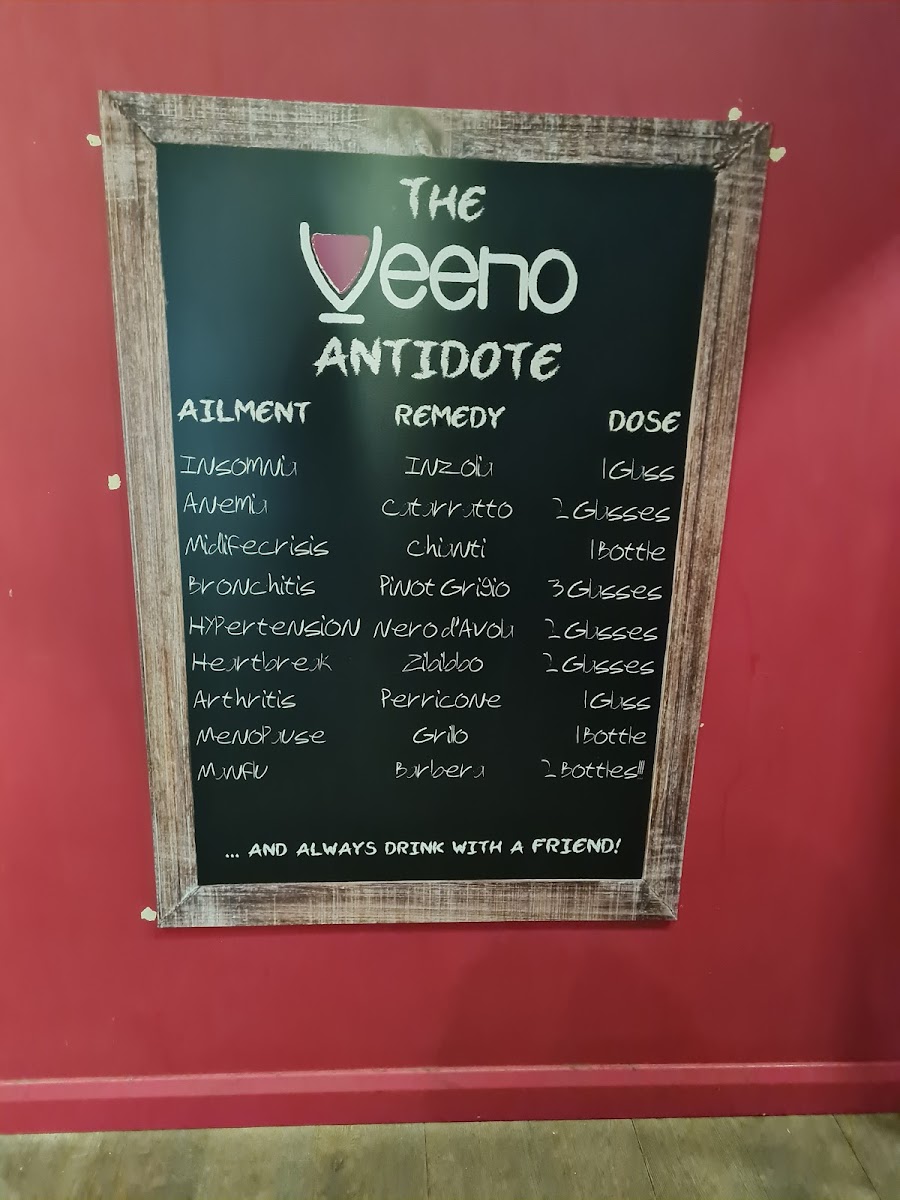 THE
Veeno
ANTIDOTE
AILMENT REMEDY DOSE
Insomnia Inzolia 1 Glass
Anemia Catarratto 2 Glasses
Midlifecrisis Chianti 1 Bottle
Bronchitis Pinot Grigio 3 Glasses
Hypertension Nero d'Avola 2 Glasses
Heartbreak Zibibbo 2 Glasses
Arthritis Perricone 1 Glass
Menopause Grillo 1 Bottle
Manflu Barbera 2 Bottles!!!
... AND ALWAYS DRINK WITH A FRIEND!